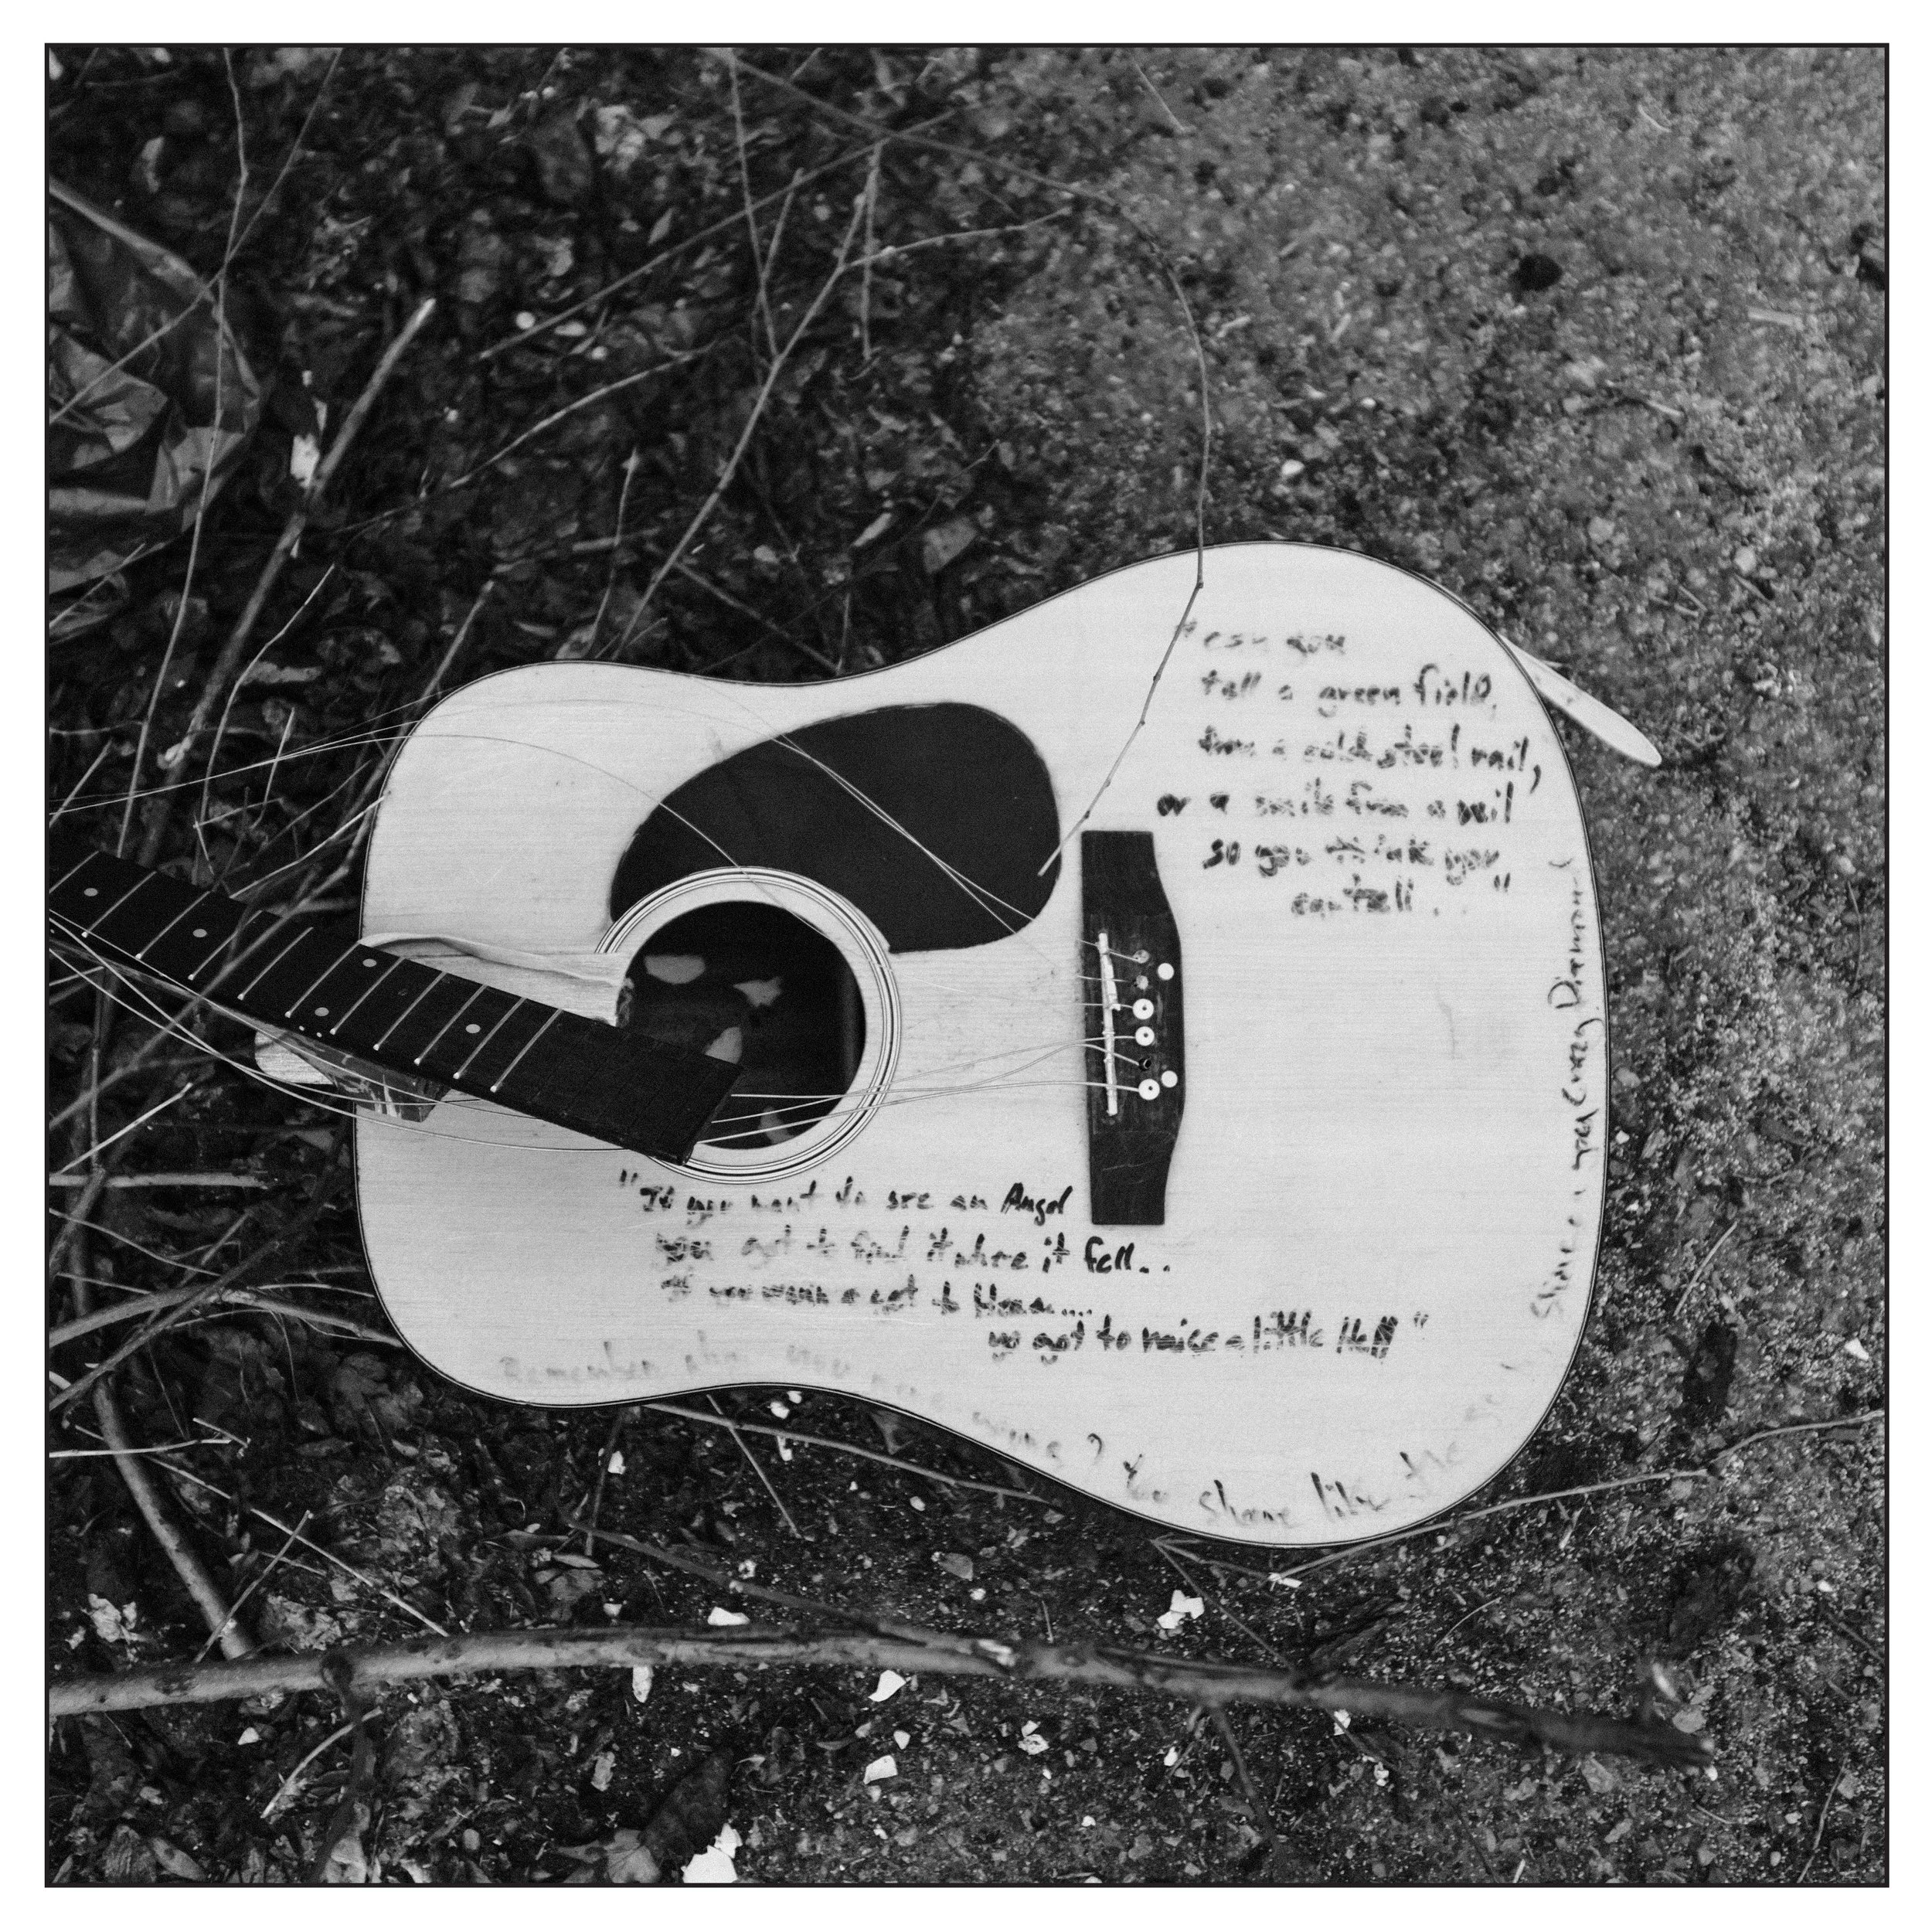 "can you
tell a green field,
from a cold steel rail,
or a smile from a veil
so you think you
can tell . . . "
"If you want to see an Angel
you got to find it where it fell..
If you wanna get to Heaven....
yo got to raise a little Hell"
Remember when you were young? You shone like the
Shine on you Crazy Diamond